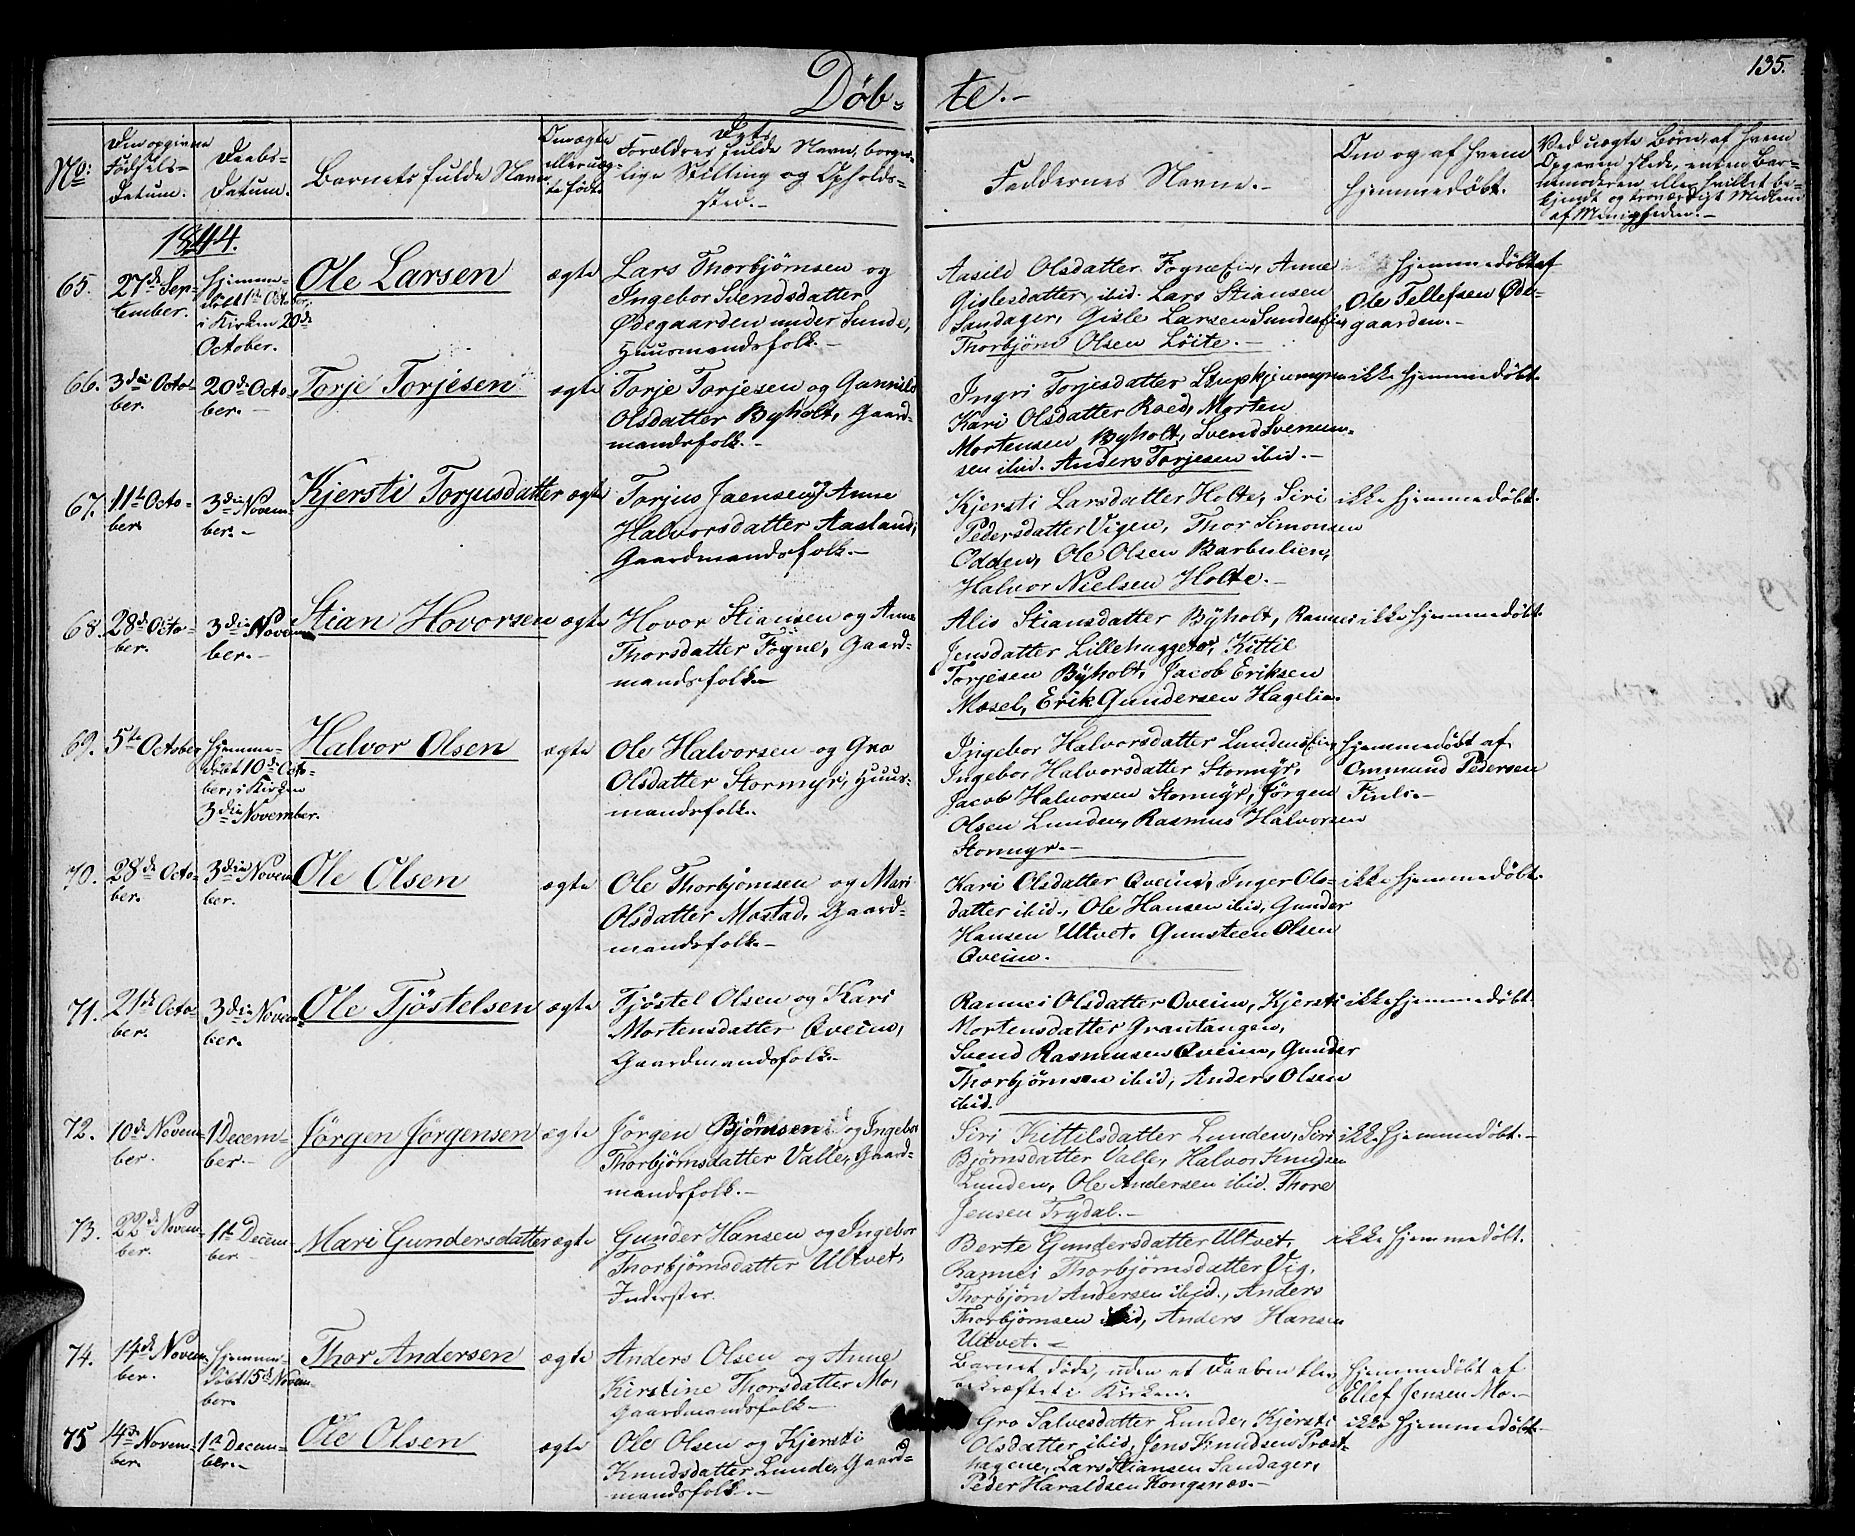 Døb-
te.-
135.
No:
Den opgivne
Fødsels-
Datum.
Daabs-
Datum.
Barnets fulde Navn
Om ægte
eller uæg-
te født
Dets
Forældres fulde Navn, borger-
lige Stilling og Opholds-
sted.-
Faddernes Navne.-
Om og af hvem
hjemmedøbt.
Ved uægte Børn, af hvem
Opgaven skede, enten Bar-
nemoderen, eller hvilket be-
kjendt og troværdigt Medlem
af Menigheden.-
1844.
65.
27de Sep-
tember.
Hjemme-
døbt 1ste October,
i Kirken 20de
October.
Ole Larsen
ægte
Lars Thorbjørnsen og
Ingebor Svendsdatter
Ødegaarden under Sunde,
Huusmandsfolk.-
Aasild Olsdatter Fogne, Anne
Gislesdatter, ibid. Lars Stiansen
Sandager, Gisle Larsen Sunde
Thorbjørn Olsen Løite.-
Hjemmedøbt af
Ole Tellefsen Øde-
gaarden.-
66.
3die Octo-
ber.
20de Octo-
ber.-
Torje Torjesen
ægte
Torje Torjesen og Gunnild
Olsdatter Byholt, Gaard-
mandsfolk.-
Ingri Torjisdatter
Kari Olsdatter Roed, Morten
Mortensen Byholt, Svend Svenun-
sen ibid. Anders Torjesen ibid.-
ikke hjemmedøbt.
67.
11te Octo-
ber
3die Novem-
ber.-
Kjersti Torjusdatter
ægte
Torjus Jaensen og Anne
Halvorsdatter Aasland,
Gaardmandsfolk.-
Kjersti Larsdatter Holte, Siri
Pedersdatter Vigen, Thor Simonsen
Odden, Ole Olsen Barbulien,
Halvor Nielsen Holte.-
ikke hjemmedøbt.
68.
28de Octo-
ber.
3die Novem-
ber.-
Stian Hovorsen
ægte
Hovor Stiansen og Anne
Thorsdatter Fogne, Gaard-
mandsfolk.-
Alis Stiansdatter Byholt, Rannei
Jensdatter Lillehuggerø, Kittil
Torjesen Byholt, Jacob Eriksen
Mosel, Erik Gundersen Hagelia.
ikke hjemmedøbt.
69.
5te October
Hjemme-
døbt 10de Octo-
ber, i Kirken
3die November.
Halvor Olsen
ægte
Ole Halvorsen og Gro
Olsdatter Stormyr, Huus-
mandsfolk.
Ingebor Halvorsdatter Lunden
Ingebor Halvorsdatter Stormyr,
Jacob Halvorsen Stormyr, Jørgen
Olsen Lunden, Rasmus Halvorsen
Stormyr.-
Hjemmedøbt af
Ommund Pedersen
70.
28de Octo-
ber.
3die Novem-
ber.
Ole Olsen
ægte
Ole Thorbjørnsen og Mari
Olsdatter Mostad, Gaard-
mandsfolk.-
Kari Olsdatter Qveim, Inger Ols-
datter ibid., Ole Hansen ibid, Gunder
Hansen Ultvet. Gunsteen Olsen
Qveim.
ikke hjemmedøbt.
71.
21de Octo-
ber.
3die Novem-
ber.
Ole Tjøstelsen
ægte
Tjøstel Olsen og Kari
Mortensdatter Qveim,
Gaardmandsfolk.-
Rannei Olsdatter Qveim, Kjersti
Mortensdatter Grautangen,
Svend Rasmusen Qveim, Gunder
Thorbjørnsen ibid, Anders Olsen
ibid.
ikke hjemmedøbt.
72.
10de Novem-
ber.
1 Decem-
ber.-
Jørgen Jørgensen
ægte
Jørgen Bjørnsen og Ingebor
Thorbjørnsdatter Valle, Gaard-
mandsfolk.-
Siri Kittilsdatter Lunden, Siri
Bjørnsdatter Valle, Halvor Knudsen
Lunden, Ole Andersen ibid. Thore
Jensen Trydal.-
ikke hjemmedøbt.-
73.
22de Novem-
ber.
1te Decem-
ber
Mari Gundersdatter
ægte
Gunder Hansen og Ingebor
Thorbjørnsdatter Ultvet,
Inderster.
Berte Gundersdatter Ultvet,
Rannei Thorbjørnsdatter Vig,
Thorbjørn Andersen ibid., Anders
Thorbjørnsen ibid, Anders Hansen
Ultvet.-
ikke hjemmedøbt.
74.
14de Novem-
ber.
Hjemme-
døbt 15de Novem-
ber.
Thor Andersen
ægte
Anders Olsen og Anne
Kirstine Thorsdatter Mo,
Gaardmandsfolk.-
Barnet døde, uden at Daaben blev
bekræftet i Kirken.
Hjemmedøbt af
Ellef Jensen Mo.-
75
4de Novem-
ber.
1te Decem-
ber.-
Ole Olsen
ægte
Ole Olsen og Kjersti
Knudsdatter Lunde, Gaard-
mandsfolk.-
Gro Salvesdatter Lunde, Kjersti
Olsdatter ibid, Jens Knudsen Præst-
hagene, Lars Stiansen Sandager,
Peder Haraldsen Kongsnæs.-
ikke hjemmedøbt.